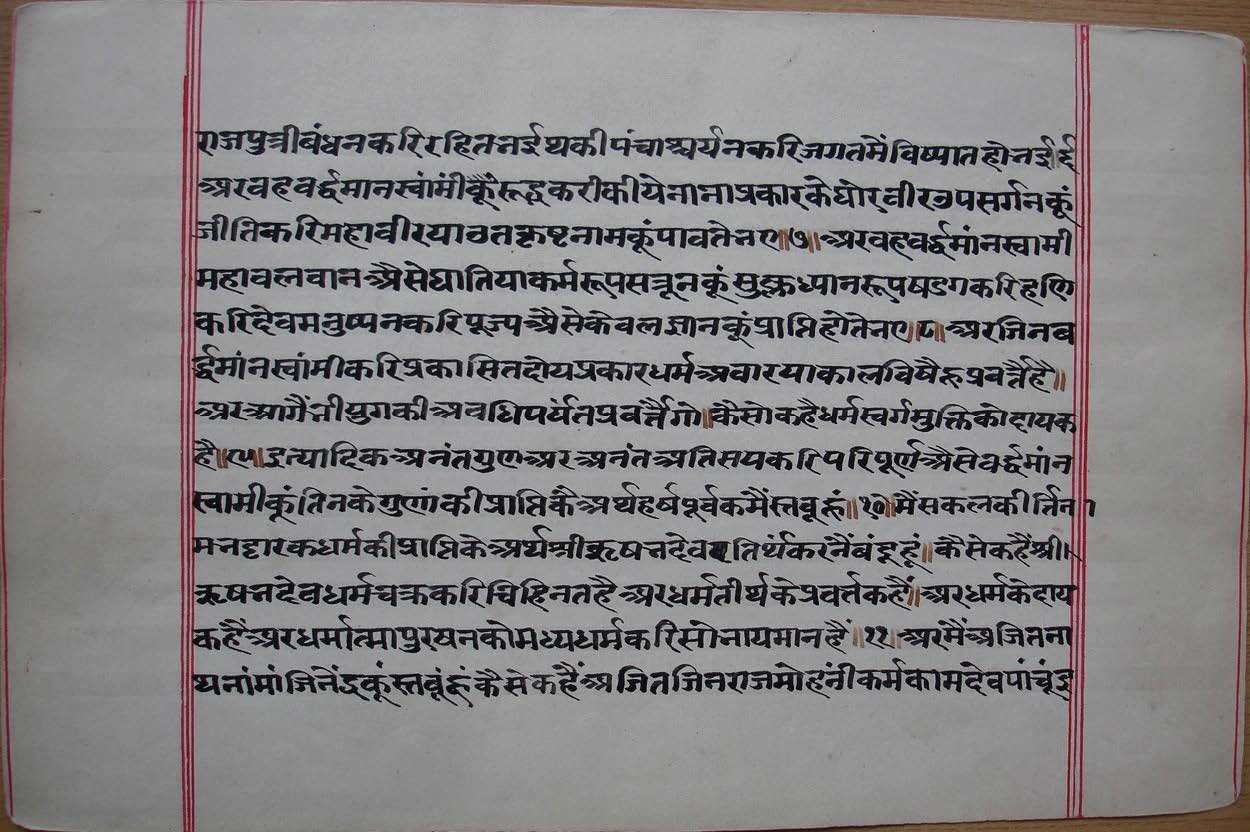 राजपुत्रीबंधनकरिरहितनईथकीपंचाश्चर्यनकरिजगतमैंविष्यातहोनईाई
अरवहवर्द्धमानस्वांमीकूंरूद्रकरीकीयेनानाप्रकारकेघोरवीरउपसर्गनकूं
जीतिकरिमहावीरयाउतकृष्टनामकूंपावतेनए॥७॥अरवहवर्द्धमांनस्वामी
महावलवानअैसेघातियाकर्मरूपसत्रूनकूंसुक्लध्यानरूपषडगकरिहणि
करिदेवमनुष्यनकरिपूज्यअैसेकेवलज्ञानकूंप्राप्तिहोतेनए॥८॥अरजिनव
र्द्धमांनस्वांमीकरिप्रकासितदोयप्रकारधर्मअवारयाकालविषैहूप्रवर्त्तैहै॥
अरआगैंनीयुगकीअवधिपर्यंतप्रवर्त्तैगो॥कैसोकहैधर्मस्वर्गमुक्तिकोदायक
है॥९॥इत्यादिकअनंतगुणअरअनंतअतिसयकरिपरिपूर्णअैसेवर्द्धमांन
स्वामीकूंतिनकेगुणांकीप्राप्तिकैअर्थहर्षपूर्वकमैंस्तवूहूं॥१०॥मैंसकलकीर्त्तिन
मनद्दारकधर्मकीप्राप्तिकेअर्थश्रीऋषनदेवतिर्थंकरनैंबंदूहूं॥कैसेकहैंश्री।
ऋषनदेवधर्मचक्रकरिचिहिनतहैअरधर्मतीर्थकेप्रवर्त्तकहैं॥अरधर्मकेदाय
कहैंअरधर्मात्मापुरषनकोमध्यधर्मकरिसोनायमानहैं॥११॥अरमैंअजितना
थनांमांजिनेंद्रकूंस्तवूंहूंकैसेकहैंअजितजिनराजमोहनींकर्मकामदेवपांचूंइ